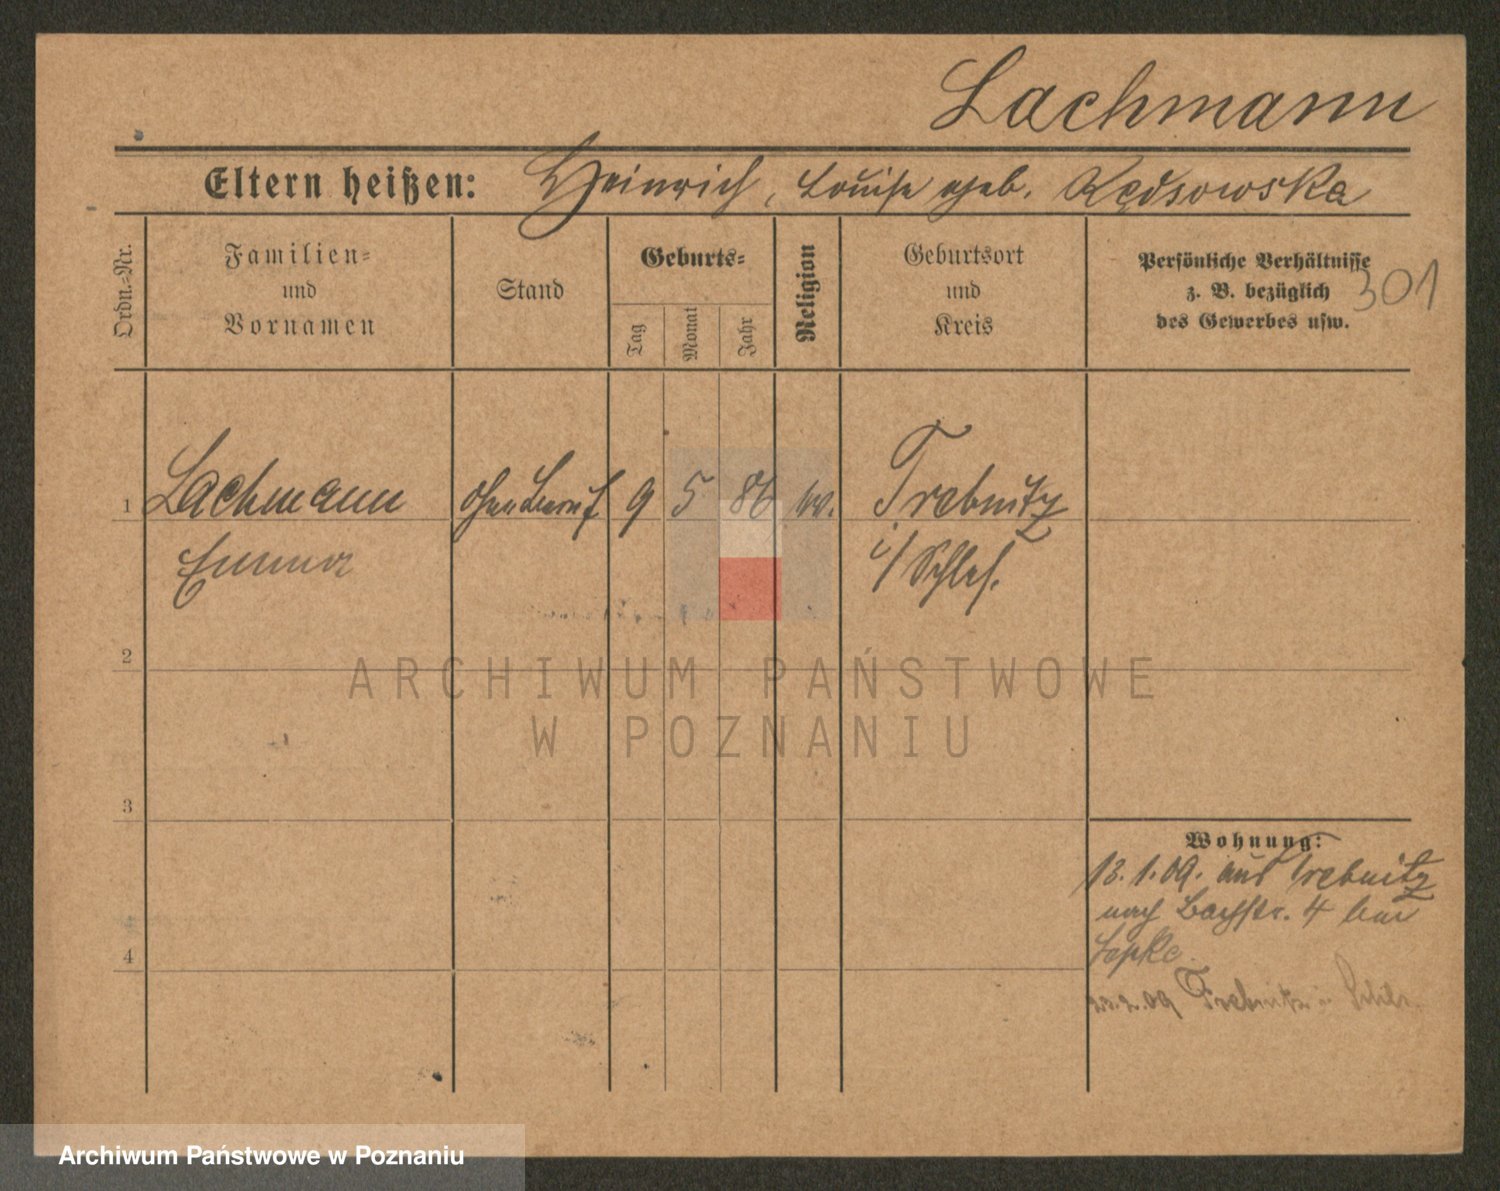 Lachmann
Eltern heißen: Heinrich, Louise geb.
301
Ordn.-Nr.
Familien- und Vornamen
Stand
Geburts-
Tag
Monat
Jahr
Religion
Geburtsort und Kreis
Persönliche Verhältnisse
z. B. bezüglich
des Gewerbes usw.
1 Lachmann ohne Beruf 9 5 86 Trebnitz
Emma i/Schles.
2
ARCHIWUM PAŃSTWOWE
W POZNANIU
3
Wohnung:
13.1.09. aus Trebnitz
nach Bachstr. 4 bei
4
2.09 Trebnitz
Archiwum Państwowe w Poznaniu